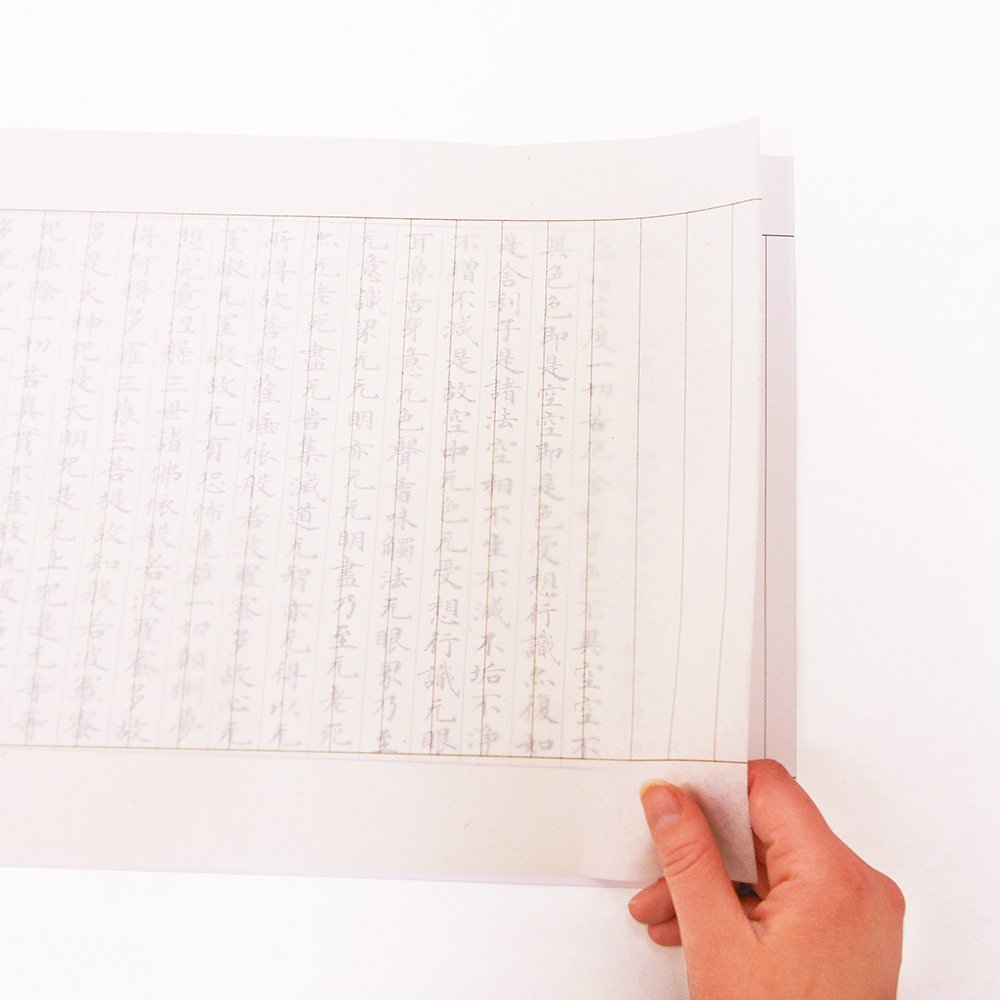 度一切苦厄舍利子色不異空空不
異色色即是空空即是色受想行識亦復如
是舍利子是諸法空相不生不滅不垢不淨
不增不減是故空中无色无受想行識无眼
耳鼻舌身意无色聲香味觸法无眼界乃至
无意識界无无明亦无无明盡乃至无老死
亦无老死盡无苦集滅道无智亦无得以无
所得故菩提薩埵依般若波羅蜜多故心无
罣礙无罣礙故无有恐怖遠離一切顛倒夢
想究竟涅槃三世諸佛依般若波羅蜜多故
得阿耨多羅三藐三菩提故知般若波羅蜜
多是大神咒是大明咒是无上咒是无等等
咒能除一切苦真實不虛故說般若